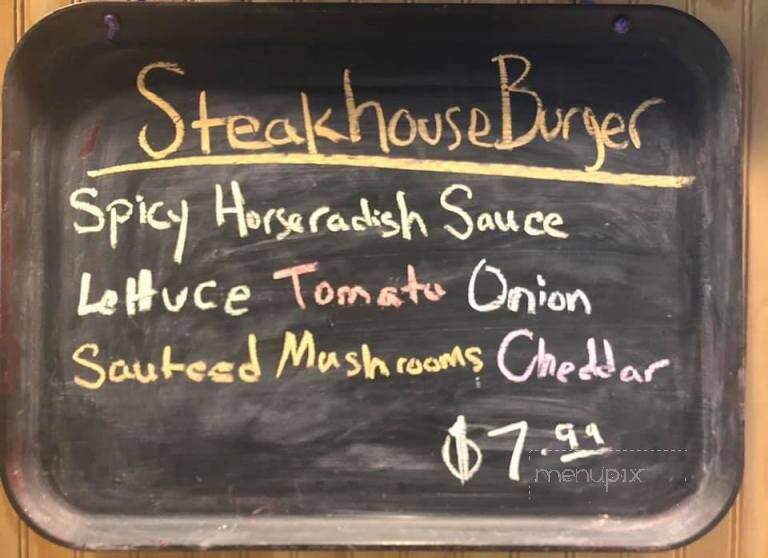 Steakhouse Burger
Spicy Horseradish Sauce
Lettuce Tomato Onion
Sauteed Mushrooms Cheddar
$7.99
menupix